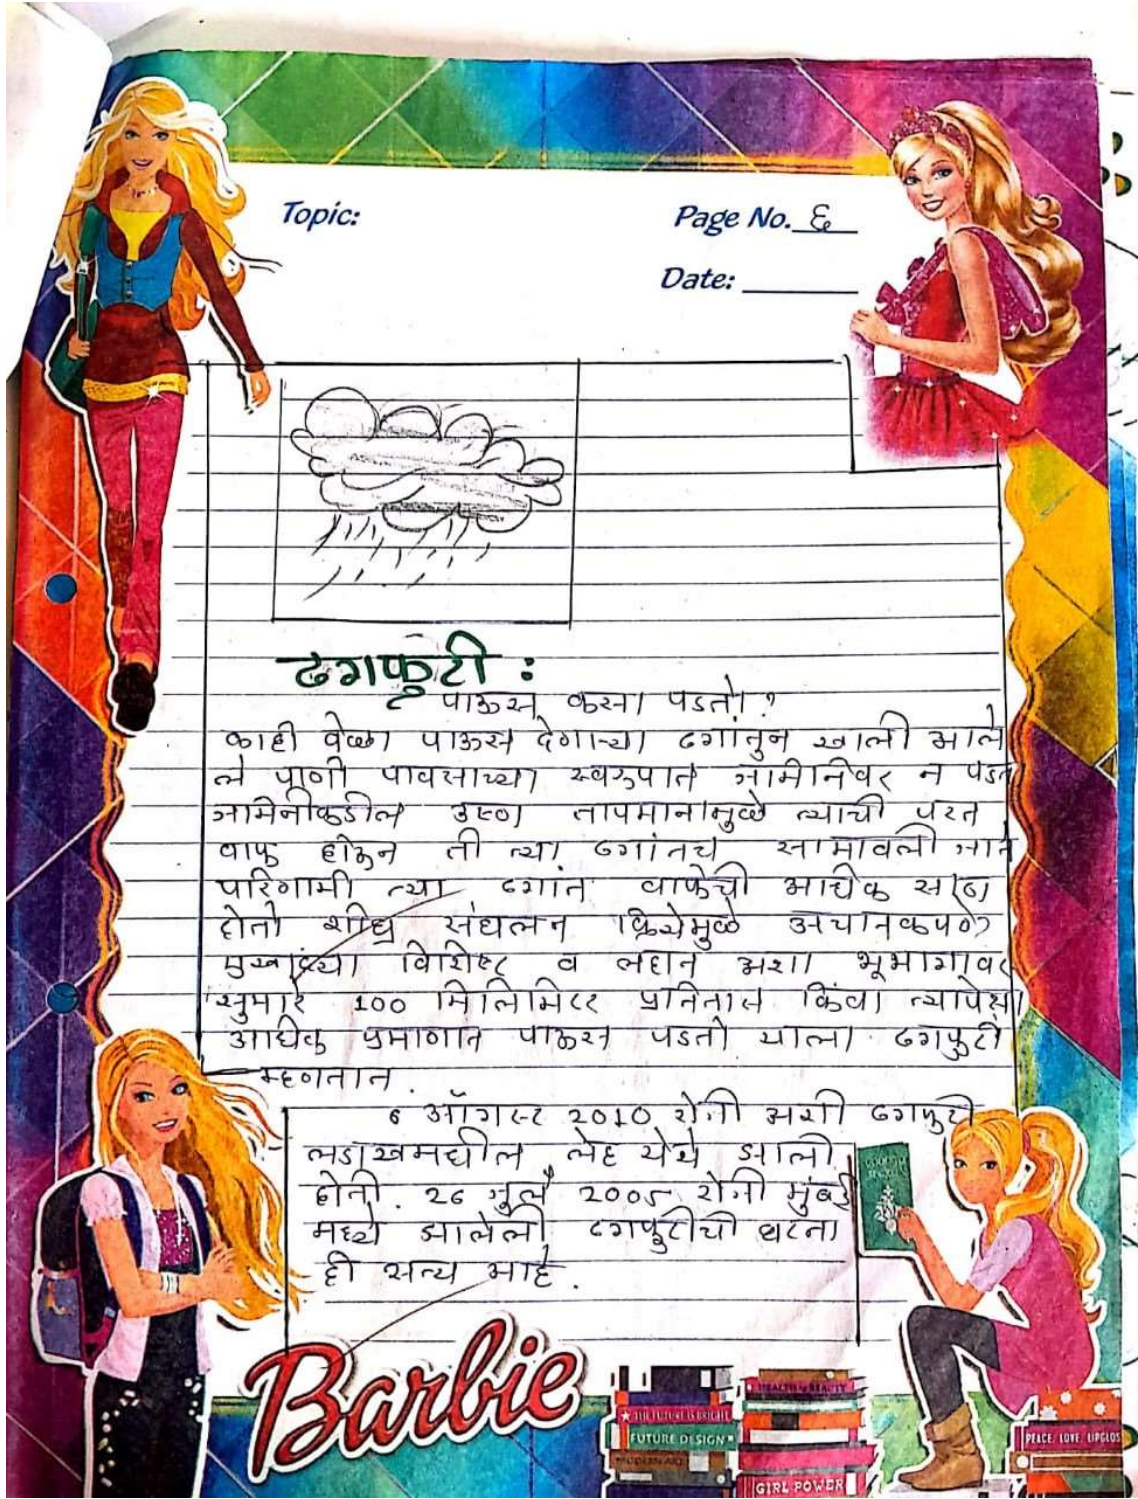 Topic:
Page No. ६
Date:
ढगफुटी :
पाऊस कसा पडतो ?
काही वेळा पाऊस देणाऱ्या ढगांतुन खाली आले
ले पाणी पावसाच्या स्वरुपात जमिनिवर न पडता
जमिनीकडील उष्ण तापमानामुळे त्याची परत
वाफ होऊन ती त्या ढगांतच सामावली जाते
परिणामी त्या ढगांत वाफेची अधिक साठा
होतो शीघ्र संघलन क्रियेमुळे अचानकपणे
एखाद्या विशिष्ट व लहान अशा भूभागावर
सुमारे 100 मिलिमिटर प्रतितास किंवा त्यापेक्षा
अधिक प्रमाणात पाऊस पडतो याला ढगफुटी
म्हणतात.
6 ऑगस्ट 2010 रोजी अशी ढगफुटी
लडाखमधील लेह येथे झाली
होती. 26 जुलै 2005 रोजी मुंबई
मध्ये झालेली ढगफुटीची घटना
ही सत्य आहे.
Barbie
HEALTH & BEAUTY
THE FUTURE IS BRIGHT
FUTURE DESIGN
GIRL POWER
PEACE LOVE LIPGLOSS